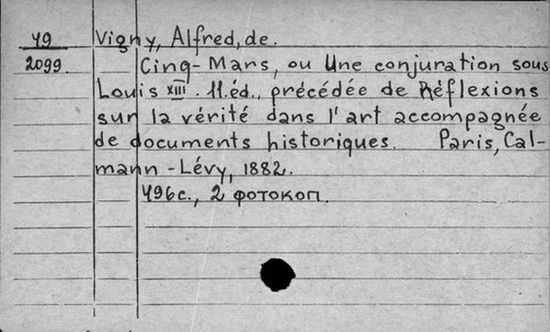 49 Vigny, Alfred, de.
2099. Cinq-Mars, ou Une conjuration sous
Louis XIII. 11.éd., précédée de Réflexions
sur la vérité dans l'art accompagnée
de documents historiques. Paris, Cal-
mann-Lévy, 1882.
496с., 2 фотокоп.